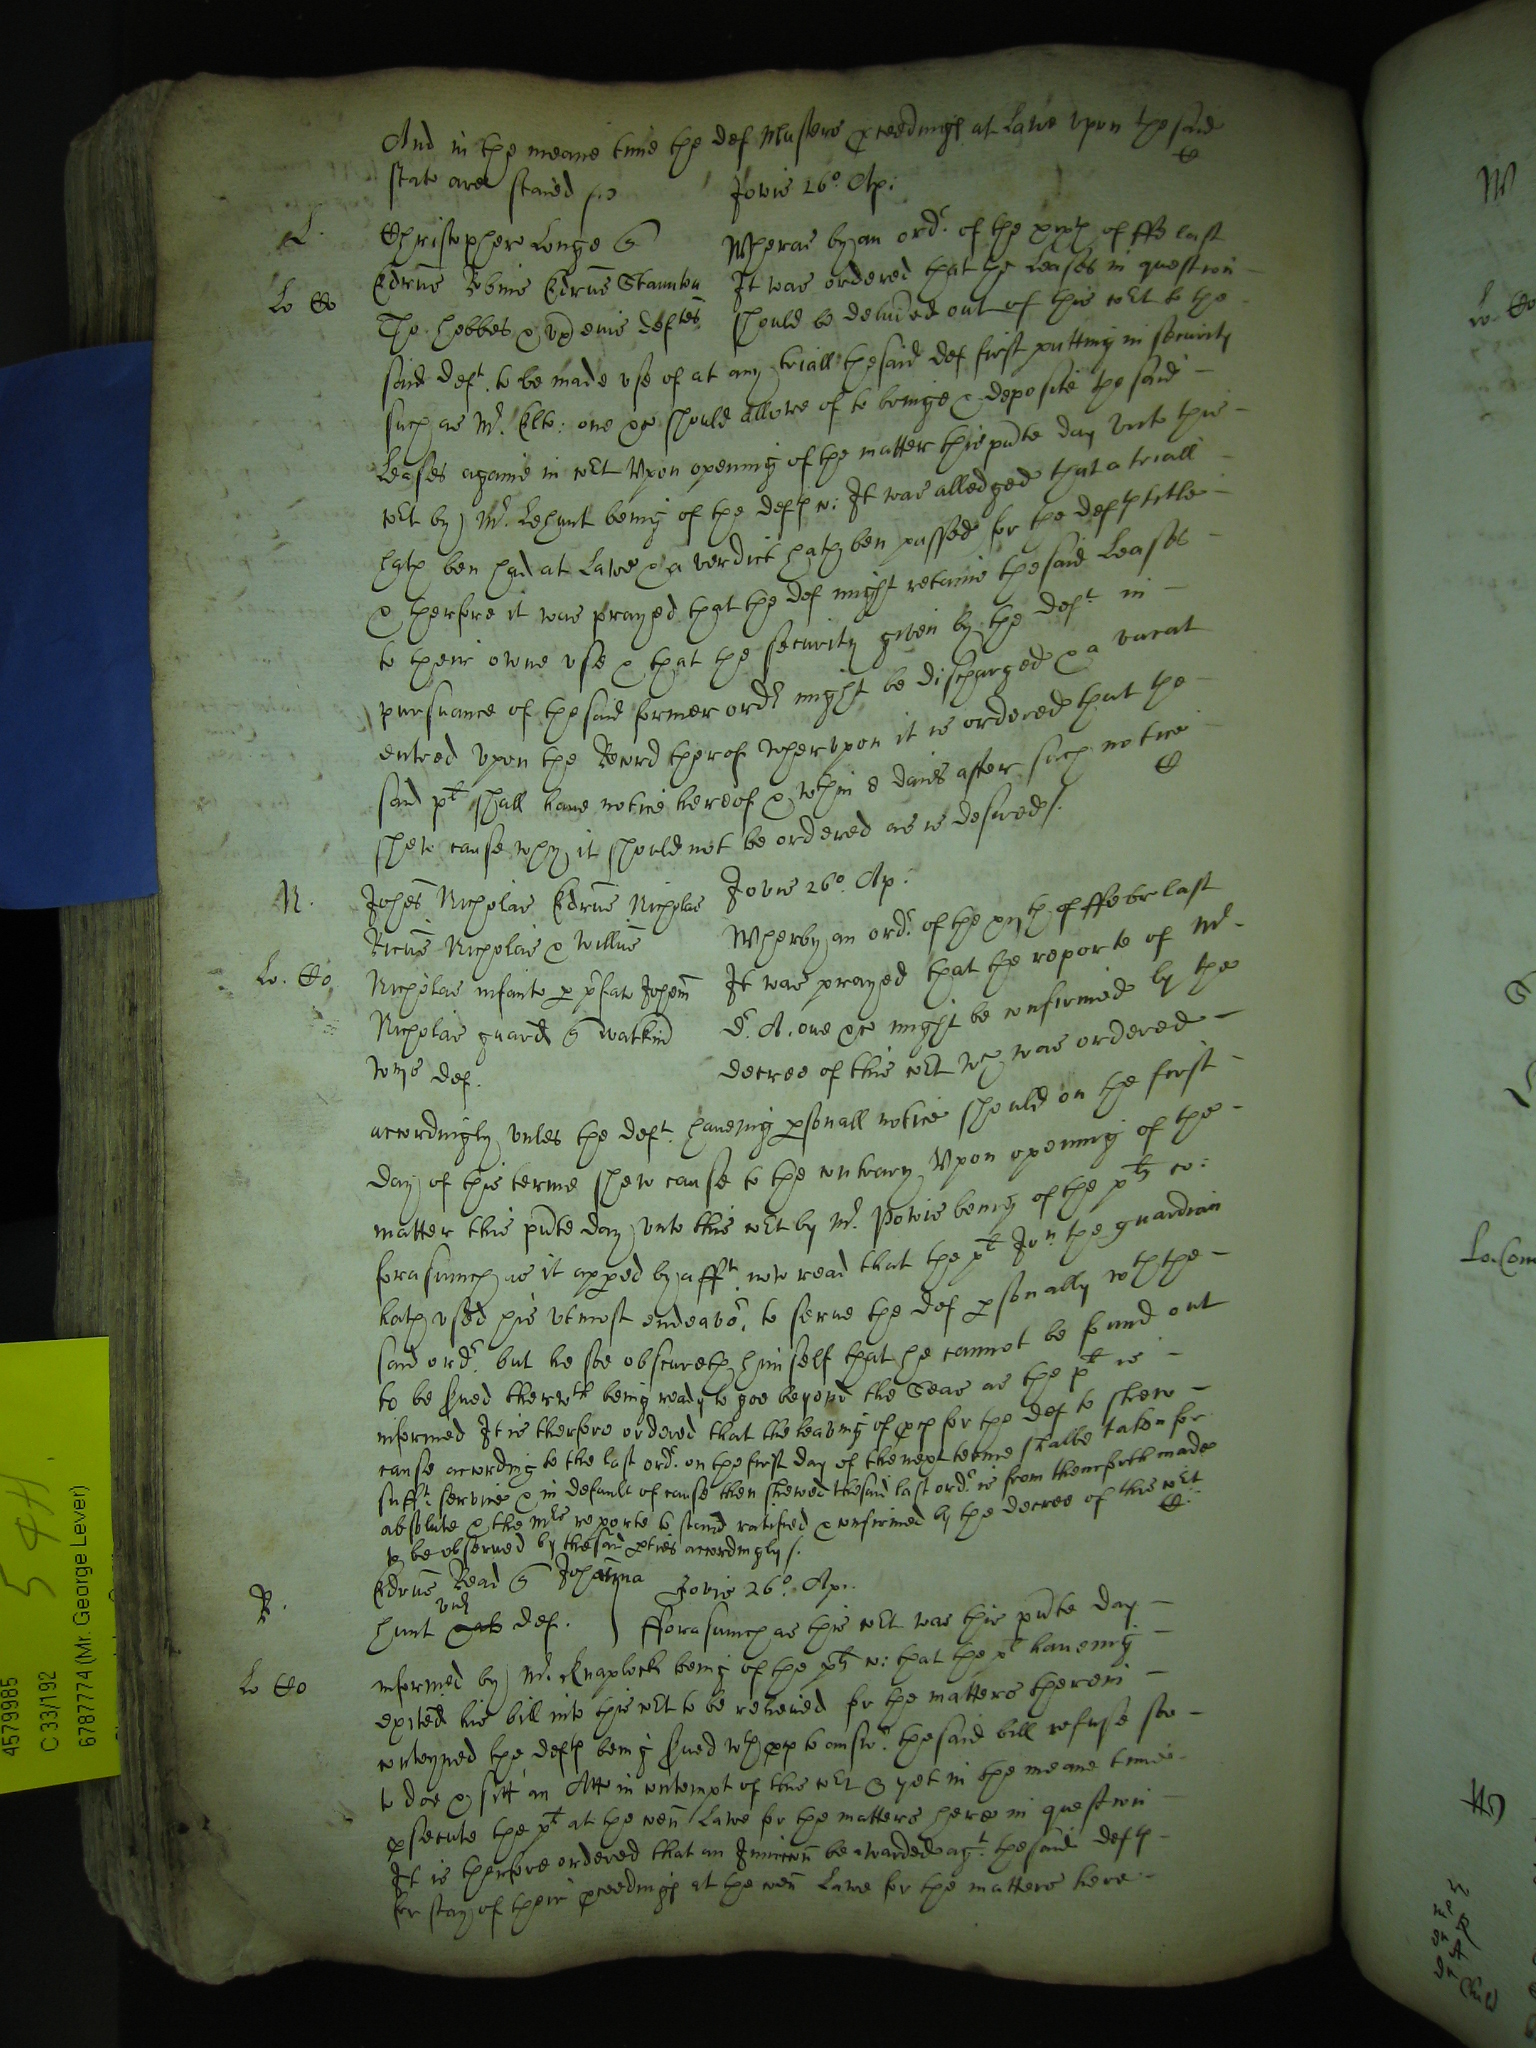 And in the meane time the def Musters pceedings at Lawe vpon the said
statute are stayed /
Jovis 26o. Ap:
L.
Christopher Longe
Lo Co
Edrus Edrus Staunton
Tho. Hobbes & ux eius deftes
Wheras by an ordr. of the xvjth of ffe last
It was ordered that the Leases in question
should be deliued out of this cort to the
said deft. to be made vse of at any triall the said def first putting in security
such as Mr. one &c should allowe of to bringe & deposite the said
Leases againe in cort Vpon opening of the matter this pnte day vnto this
cort by Mr. Lehunt being of the defts co: It was alledged that a triall
hath ben had at Lawe & a verdict hath ben passed for the defts title
& therfore it was prayed that the def might retaine the said Leases
to their owne vse & that the security given by the deft. in
pursuance of the said former ordr might be discharged & a vacat
entred vpon the Record therof Whervpon it is ordered that the
said plt shall haue notice hereof & wthin 8 daies after such notice
shew cause why it should not be ordered as is desired /.
N.
Johes Nicholas Edrus Nicholas
Ricus Nicholas & Willus
Lo. Co
Nicholas infante p pfat Johem
Nicholas guard Watkin
def.
Jovis 26o. Ap:
Wherby an ordr. of the xijth of ffebr last
It was prayed that the reporte of Mr.
Dr. A. one &c might be confirmed by the
decree of this cort wch was ordered
accordingly vnles the deft. haueing psonall notice should on the first
day of this terme shew cause to the contrary Vpon opening of the
matter this pnte day vnto this cort by Mr. Powis being of the plts co:
forasmuch as it apped by afft. now read that the plt Jon the guardian
hath vsed his vtmost endeavor. to serue the def psonally wth the
said ordr. but he soe obscureth himself that he cannot be found out
to be srued therwth being ready to goe beyond the Seas as the plt is
informed It is therfore ordered that the leaving of pces for the def to shew
cause according to the last ordr. on the first day of the next terme shalbe taken for
sufft. service & in default of cause then shewed the said last ordr. is from thencforth made
absolute & the Mrs reporte to stand ratified & confirmed by the decree of this cort
to be observed by the said pties accordingly /.
R.
Edrus Read Johanna
Hunt vid def.
Jovis 26o. Ap.
fforasmuch as this cort was this pnte day
Lo Co
informed by Mr. Knaplock being of the plts co: that the plt haueing
exited his bill into this cort to be releued for the matters therein
conteyned the defts being srued wth pces to answr. the said bill refuse soe
to doe & sitt an Atta in contempt of this cort & yet in the meane time
psecute the plt at the coen Lawe for the matters here in question
It is therfore ordered that an Iniuncon be awarded agt. the said defts
for stay of their pceedings at the coen Lawe for the matters here
5 4H.
4579985
C 33/192
6787774 (Mr. George Lever)
Lo. Co
Lo. Com